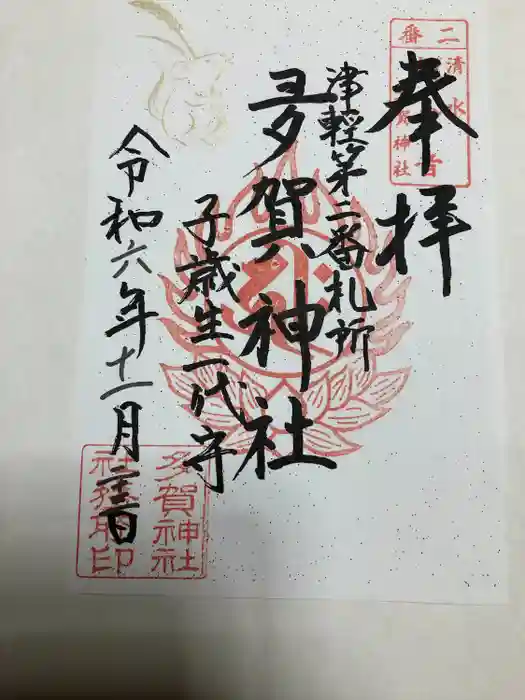 二番
清水
神社
奉拝
津軽第二番札所
多賀神社
子歳生一代守
令和六年十一月二十三日
多賀神社
印